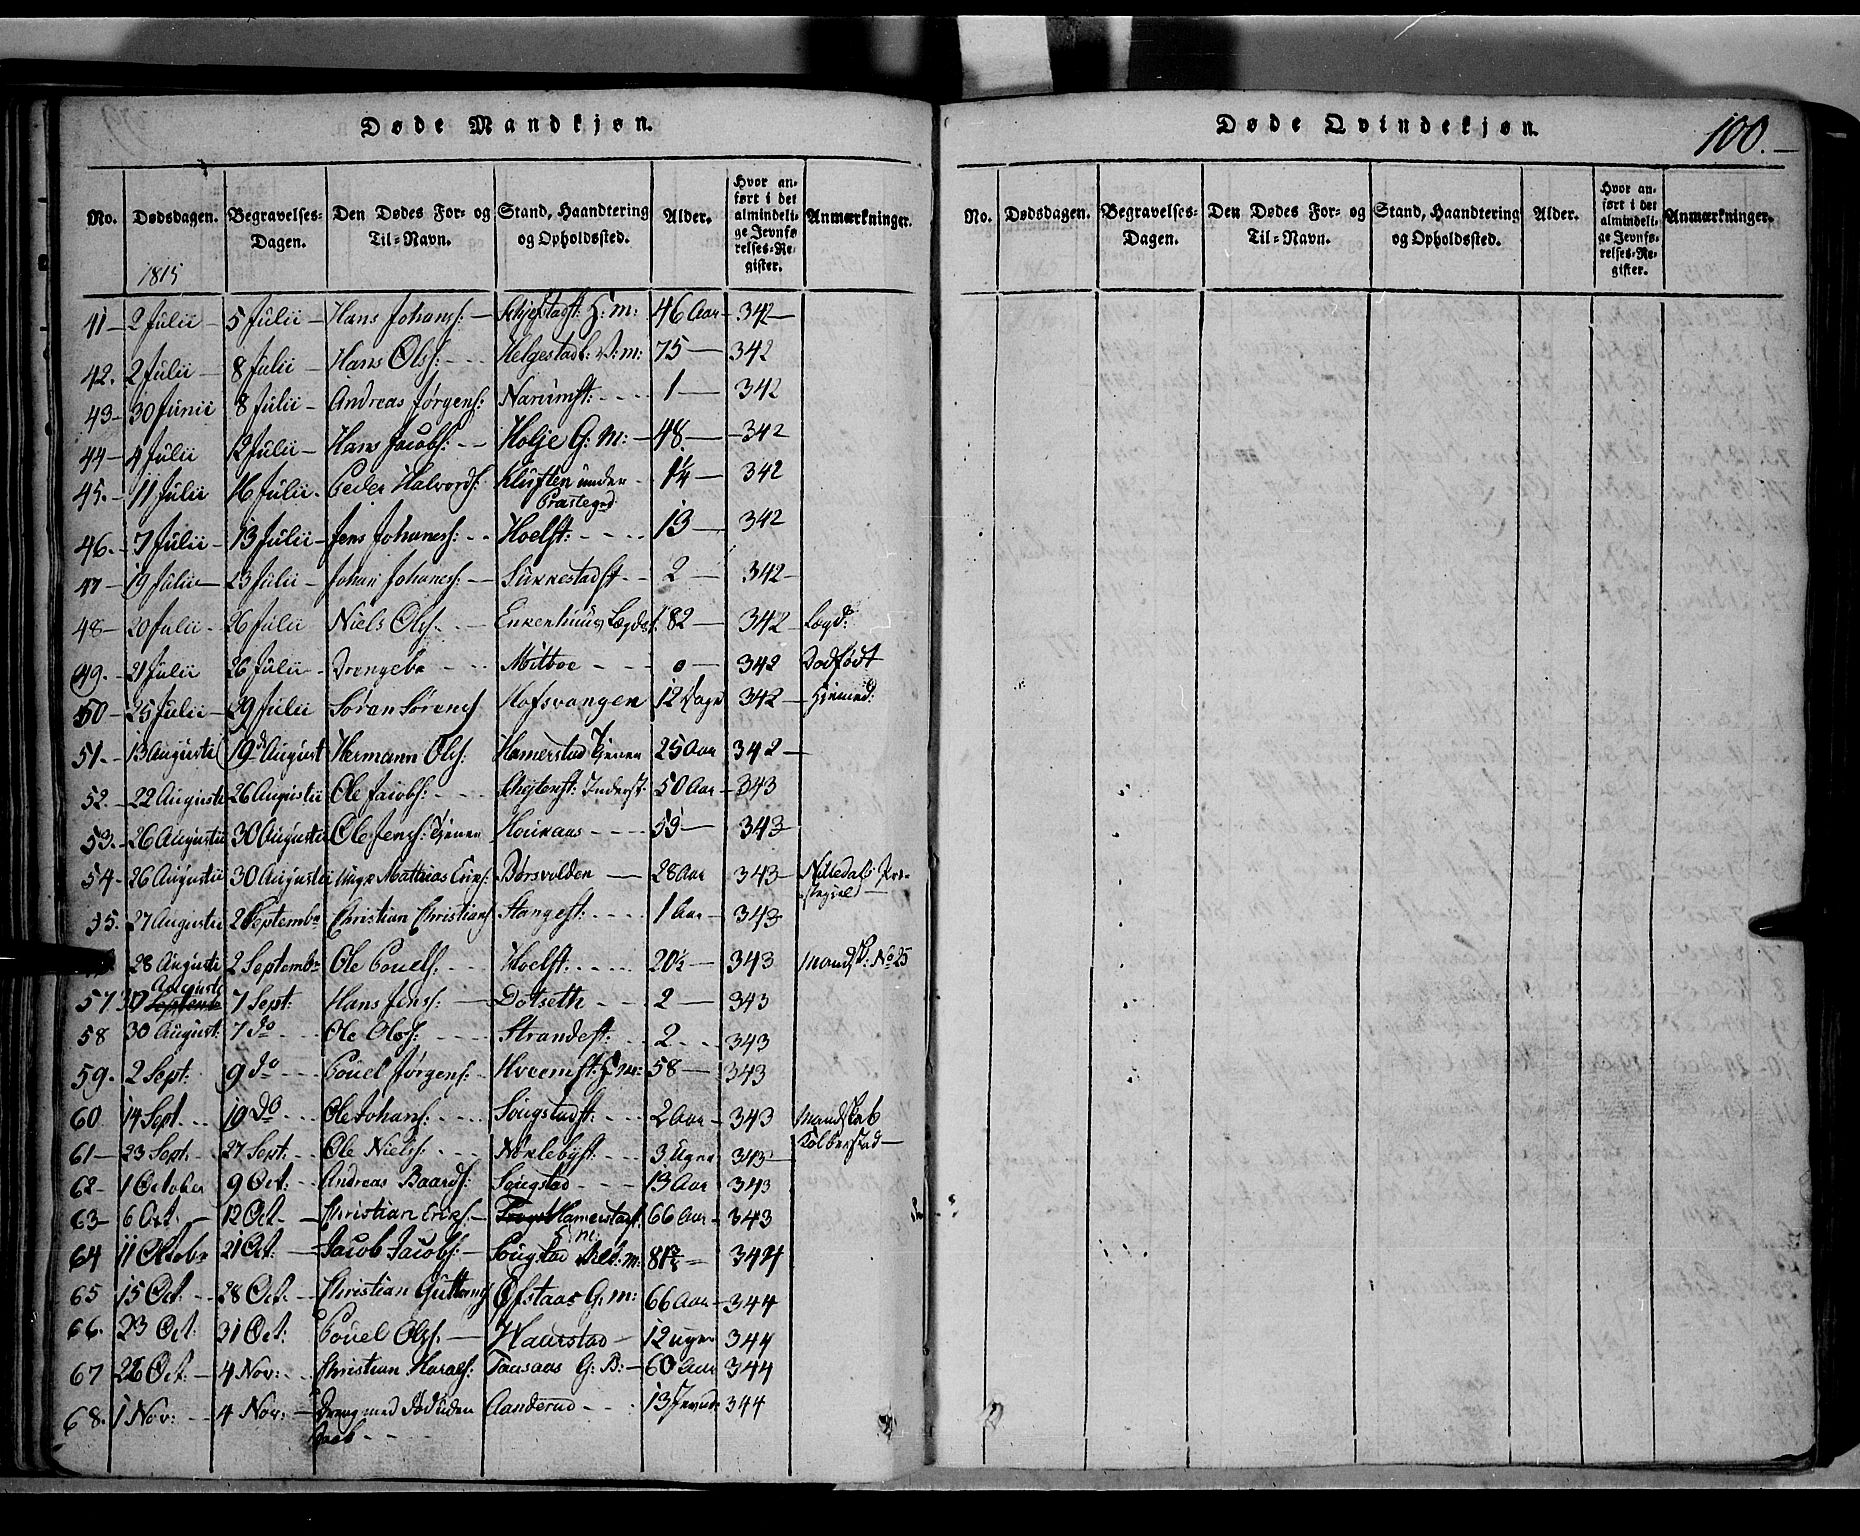 Døde Mandkjøn.
No. Dødsdagen. Begravelses-Dagen. Den Dødes For- og Til-Navn. Stand, Haandtering og Opholdssted. Alder. Hvor anført i det almindelige Jevnførelses-Register. Anmærkninger.
1815
41 – 2 Julii – 5 Julii – Hans Johans: – 46 Aar – 342 –
42. 2 Julii – 8 Julii – Hans Ols: – – Helgestad: V: m: 75 – 342
43 – 30 Junii 8 Julii – Andreas Jørgens: Narumst: – – 1 – 342
44 – 4 Julii 12 Julii – Hans Jacobs: – – Holje G: M: – 48 – 342
45. – 11 Julii 16 Julii. Peder Halvords: Kluften under Præstegrd 1¼ – 342
46. – 7 Julii – 13 Julii – Jens Johanes: – – Hoelst: – – – 13 – 342
47 – 19 Julii – 23 Julii – Johan Johanes: – 2 – 342 –
48 – 20 Julii – 26 Julii Niels Ols. – – Enkenhuus Lægds: 82 – 342 – Lægd:
49. – 21 Julii 26 Julii Drengebn – – Mitboe – – – 0 – 342 Dødfødt
50 – 25 Julii – 29 Julii Søren Sørens Hofsvangen 12 Dage 342 – Hiemed:
51. – 13 Augusti 19 August Hermann Ols: Hamerstad Tjener 25 Aar 342 –
52. – 22 Augusti 26 Augustii Ole Jacobs: – – Inderst: 50 Aar – 343
53. – 26 Augustii 30 Augustii Ole Jens: Tjener – – – 59 – 343 –
54 – 26 Augustii 30 Augustii Mathias Eriks: Børsvolden – 28 Aar 343 – Nittedals Præstegield
55. 27 Augustii 2 Septembr Christian Christians Stangest: – – 1 Aar – 343
28 Augusti 2 Septembr Ole Povels: – – Hoelst: – – – 20½ – 343 Mands: No 25
57 30 Augusti 7 Sept: Hans Jens: – Dotseth – – 2 – 343
58 30 August: 7 do – – Ole Ols: – – Strandest: – – 2 – – 343
59. 2 Sept: 9 do – – Povel Jørgens: – Hveemst: H: m: 58 – 343
60 14 Sept – – 19 do – – Ole Johans: – – Sougstadst: – – 2 Aar – 343 Mandskab
61 – 23 Sept: – 27 Sept: – – Ole Niels: – – Nøklebyst: – – 3 Uger 343 – Kolberstad –
62 – 1 October 9 Oct: – Andreas Baards: Sougstad – – 13 Aar – 343
63 – 6 Oct: – 12 Oct – – Christian Eriks: – Hamerstad: 66 Aar – 343
64 11 Octobr 21 Oct: – Jacob Jacobs: – Sougstad 81½ – 344
65 15 Oct: – 28 Oct. – Christian Guttorms Ofstaas G: m: 66 Aar – 344
66. 23 Oct: 31 Oct: Povel Ols: – Haurstad – 12 uger 344
67 28 Oct: – 4 Nov: – – Christian Harals: Taasaas G: B: – 60 Aar 344
68. 1 Nov: – – 4 Nov: – Dreng med Død uden Daab – – – Aanderud – – – 344
Døde Qvindekjøn.
100. –
No. Dødsdagen. Begravelses-Dagen. Den Dødes For- og Til-Navn. Stand, Haandtering og Opholdssted. Alder. Hvor anført i det almindelige Jevnførelses-Register. Anmærkninger.